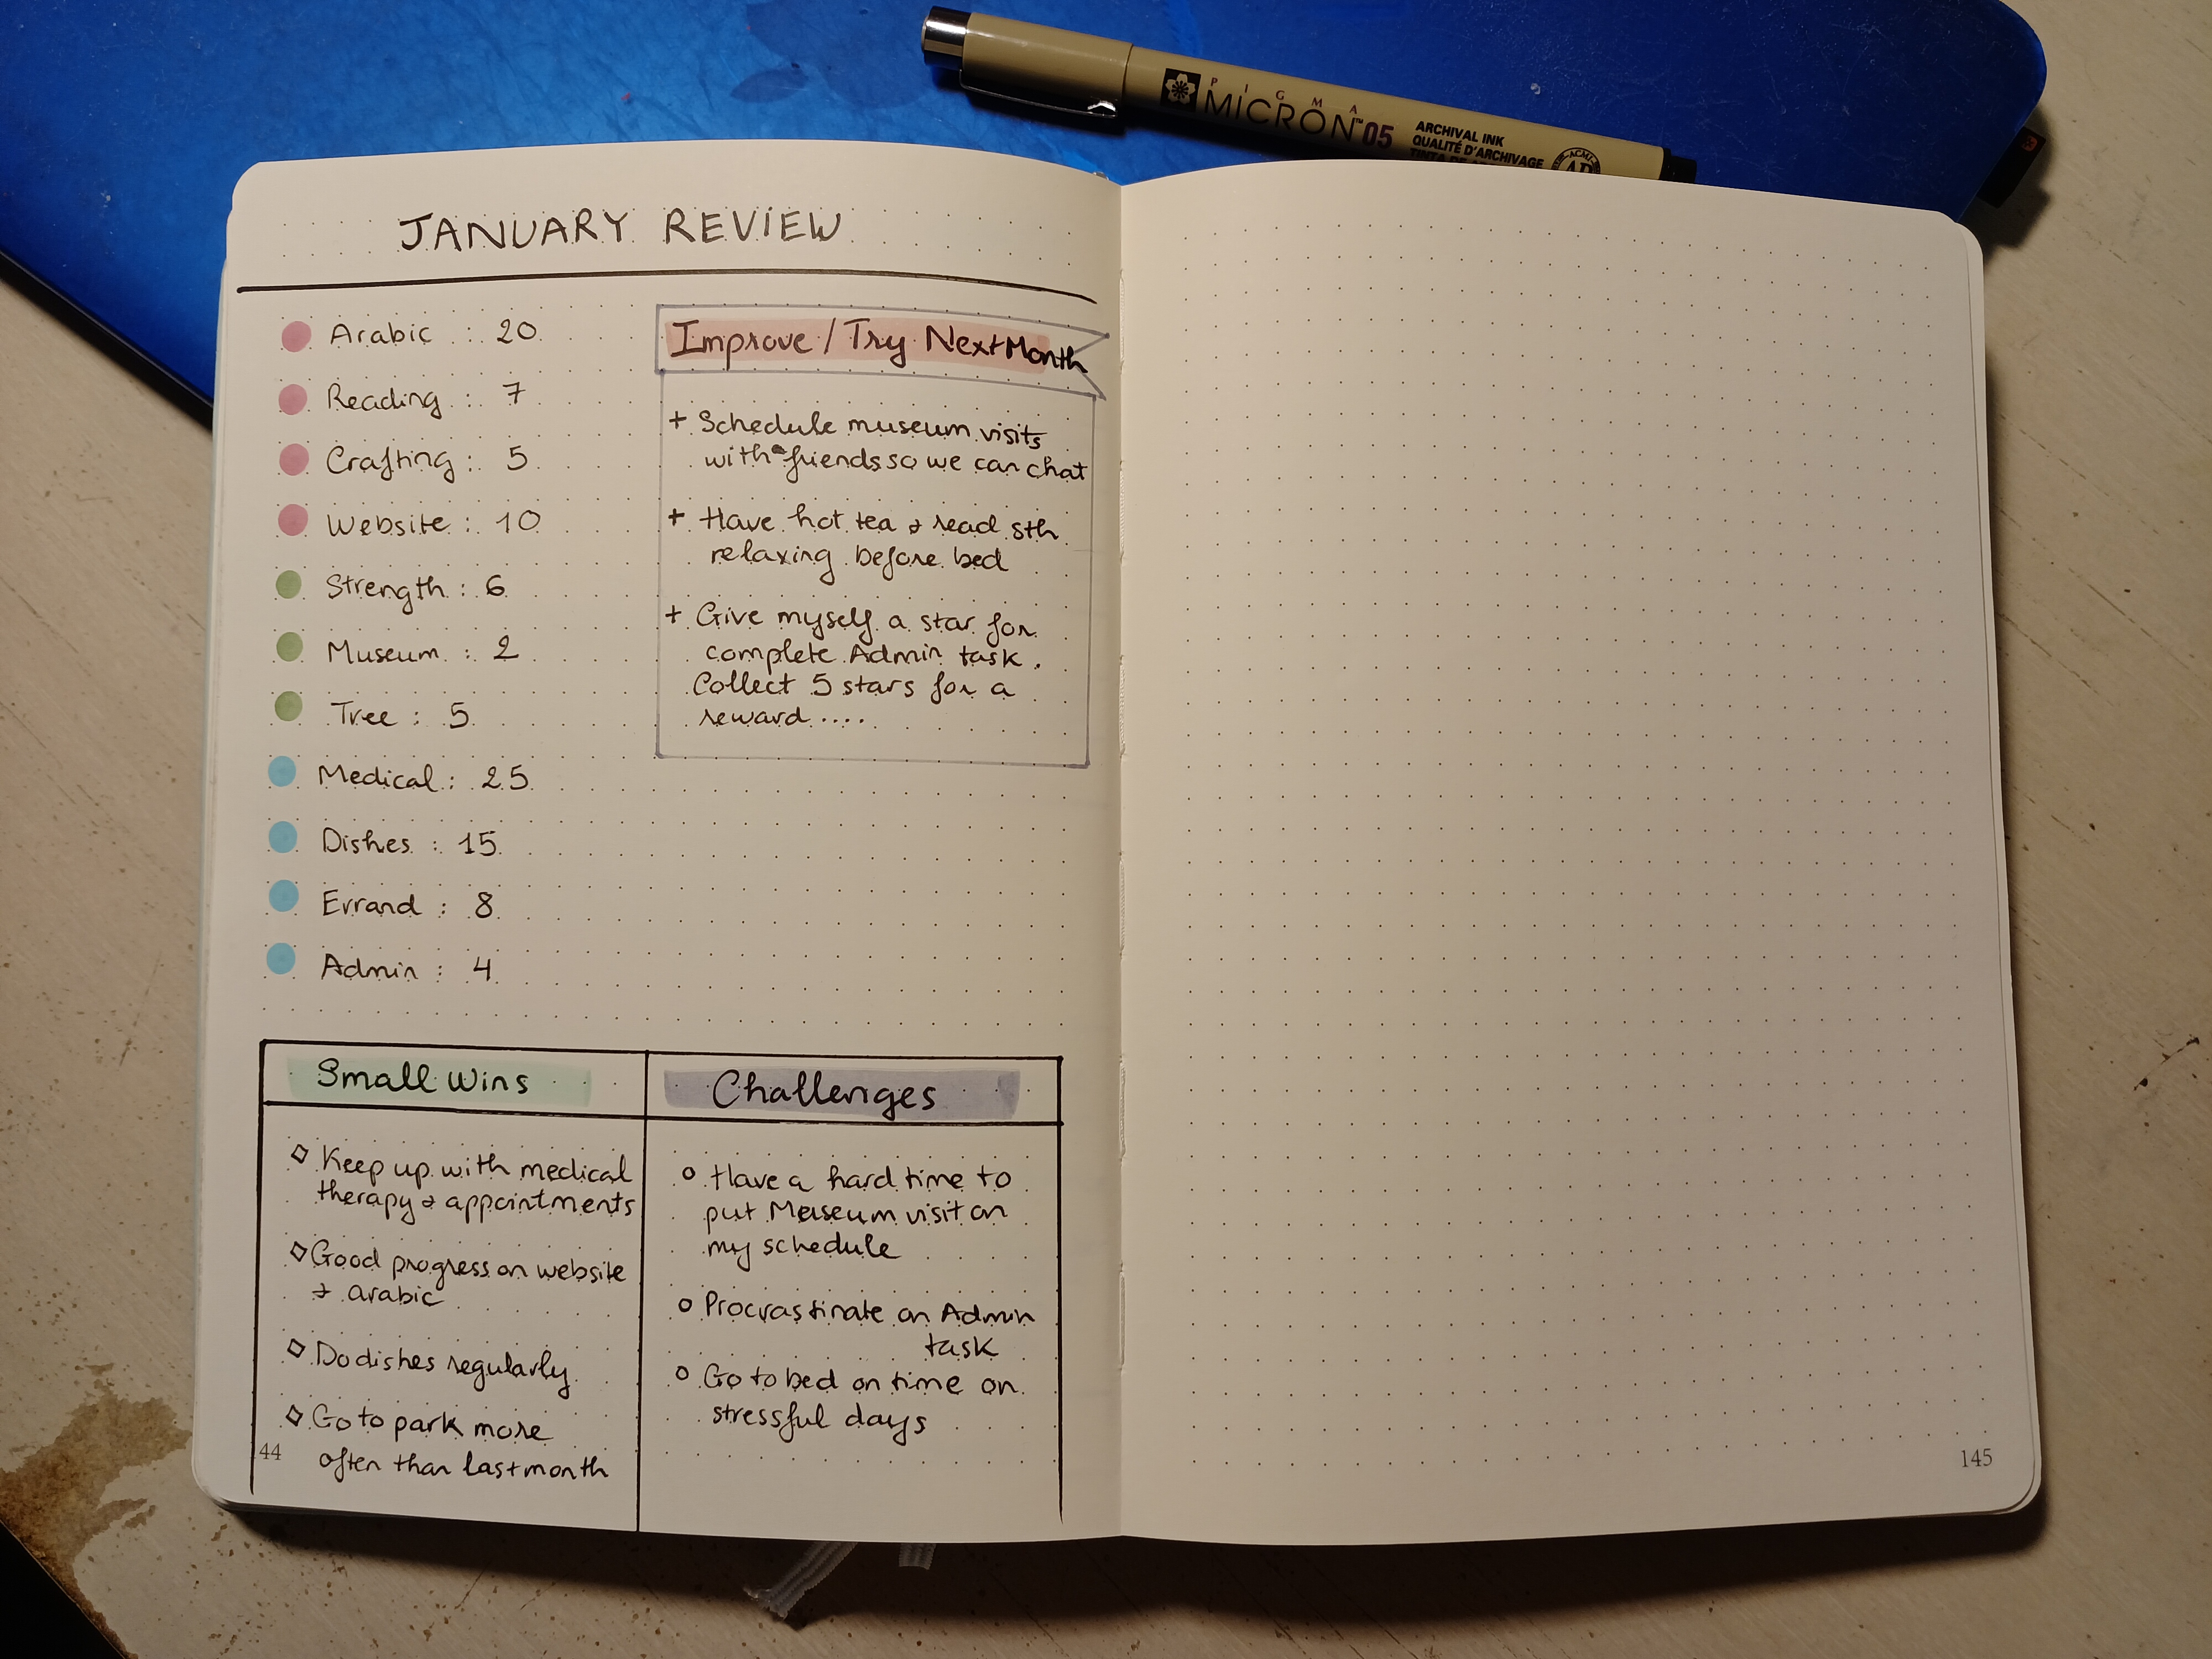 PIGMA
MICRON™ 05
ARCHIVAL INK
QUALITÉ D'ARCHIVAGE
JANUARY REVIEW
Arabic : 20
Reading : 7
Crafting : 5
Website : 10
Strength : 6
Museum : 2
Tree : 5
Medical : 25
Dishes : 15
Errand : 8
Admin : 4
Improve / Try Next Month
+ Schedule museum visits
with friends so we can chat
+ Have hot tea & read sth
relaxing before bed
+ Give myself a star for
complete Admin task.
Collect 5 stars for a
reward....
Small Wins
Keep up with medical
therapy & appointments
Good progress on website
& arabic
Do dishes regularly
Go to park more
often than last month
Challenges
Have a hard time to
put Museum visit on
my schedule
Procrastinate on Admin
task
Go to bed on time on
stressful days
44
145